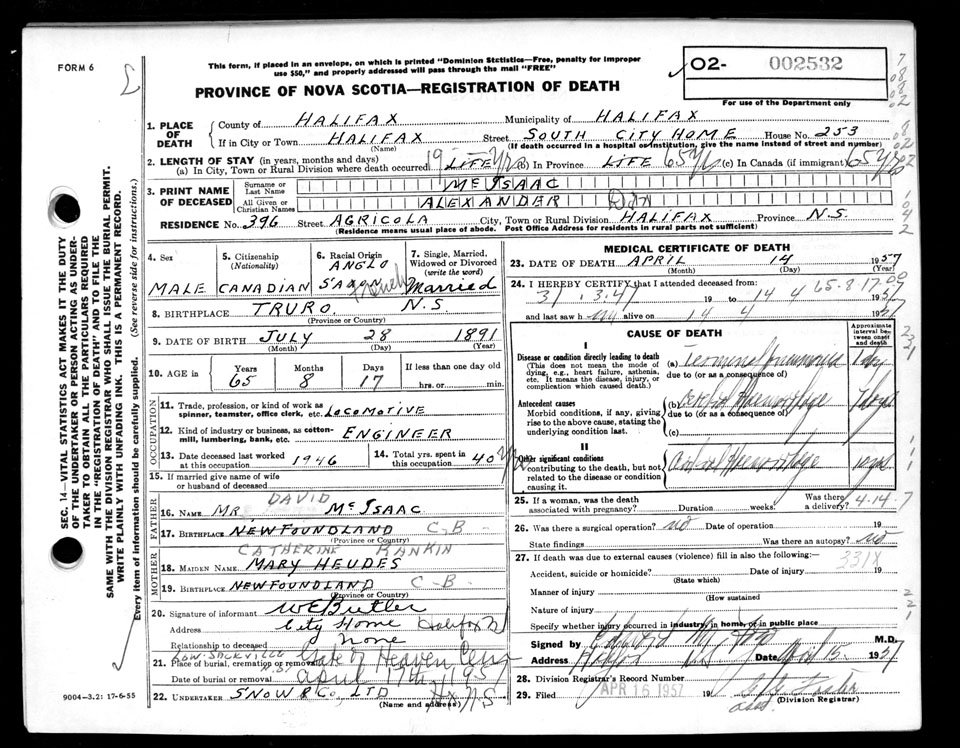 FORM 6
This form, if placed in an envelope, on which is printed "Dominion Statistics—Free, penalty for improper
use $50," and properly addressed will pass through the mail "FREE"
O2- 002532
For use of the Department only
PROVINCE OF NOVA SCOTIA—REGISTRATION OF DEATH
1. PLACE OF DEATH
County of HALIFAX Municipality of HALIFAX
If in City or Town HALIFAX Street SOUTH CITY HOME House No. 253
(Name) (If death occurred in a hospital or institution, give the name instead of street and number)
2. LENGTH OF STAY (in years, months and days)
(a) In City, Town or Rural Division where death occurred LIFE (b) In Province LIFE 65 Yrs (c) In Canada (if immigrant) 65 Yrs
3. PRINT NAME OF DECEASED
Surname or Last Name McISAAC
All Given or Christian Names ALEXANDER Dan
RESIDENCE No. 396 Street AGRICOLA City, Town or Rural Division HALIFAX Province N.S.
(Residence means usual place of abode. Post Office Address for residents in rural parts not sufficient)
4. Sex MALE
5. Citizenship (Nationality) CANADIAN
6. Racial Origin ANGLO SAXON French
7. Single, Married, Widowed or Divorced (write the word) Married
8. BIRTHPLACE TRURO, N.S.
(Province or Country)
9. DATE OF BIRTH JULY 28 1891
(Month) (Day) (Year)
10. AGE in Years 65 Months 8 Days 17 If less than one day old hrs. or min.
OCCUPATION
11. Trade, profession, or kind of work as spinner, teamster, office clerk, etc. LOCOMOTIVE
12. Kind of industry or business, as cotton-mill, lumbering, bank, etc. ENGINEER
13. Date deceased last worked at this occupation 1946
14. Total yrs. spent in this occupation 40 Yrs
15. If married give name of wife or husband of deceased
FATHER
DAVID
16. NAME MR. McISAAC
17. BIRTHPLACE NEWFOUNDLAND C-B-
(Province or Country)
MOTHER
CATHERINE RANKIN
18. MAIDEN NAME MARY HEUDES
19. BIRTHPLACE NEWFOUNDLAND C-B-
(Province or Country)
20. Signature of informant W E Butler
Address City Home Halifax NS
Relationship to deceased None
LOW. SACKVILLE N.S.
21. Place of burial, cremation or removal Gate of Heaven Cem
Date of burial or removal April 17th, 1957
22. UNDERTAKER SNOW & Co., LTD Hx N.S
(Name and address)
9004—3.2: 17-6-55
MEDICAL CERTIFICATE OF DEATH
23. DATE OF DEATH APRIL 14 1957
(Month) (Day) (Year)
24. I HEREBY CERTIFY that I attended deceased from:
31. 3. 47 19 to 14 4 1957
and last saw h alive on 14 4 1957
65-8 17-00
CAUSE OF DEATH
Approximate interval between onset and death
I
Disease or condition directly leading to death
(This does not mean the mode of dying, e.g., heart failure, asthenia, etc. It means the disease, injury, or complication which caused death.)
(a) Terminal Pneumonia 1 day
due to (or as a consequence of)
Antecedent causes
Morbid conditions, if any, giving rise to the above cause, stating the underlying condition last.
(b) Cerebral Haemorrhage
due to (or as a consequence of)
(c)
II
Other significant conditions
contributing to the death, but not related to the disease or condition causing it.
Haemorrhage
25. If a woman, was the death associated with pregnancy? Duration weeks. Was there a delivery?
4-14-7
26. Was there a surgical operation? no Date of operation 19
State findings Was there an autopsy? no
27. If death was due to external causes (violence) fill in also the following:—
331X
Accident, suicide or homicide? Date of injury 19
(State which)
Manner of injury
(How sustained)
Nature of injury
Specify whether injury occurred in industry, in home, or in public place
Signed by M.D.
Address Date April 15 1957
28. Division Registrar's Record Number
29. Filed APR 16 1957 19
(Division Registrar)
SEC. 14—VITAL STATISTICS ACT MAKES IT THE DUTY
OF THE UNDERTAKER OR PERSON ACTING AS UNDER-
TAKER TO OBTAIN ALL THE PARTICULARS REQUIRED
IN THE "REGISTRATION OF DEATH" AND TO FILE THE
SAME WITH THE DIVISION REGISTRAR WHO SHALL ISSUE THE BURIAL PERMIT.
WRITE PLAINLY WITH UNFADING INK. THIS IS A PERMANENT RECORD.
Every item of information should be carefully supplied. (See reverse side for instructions.)